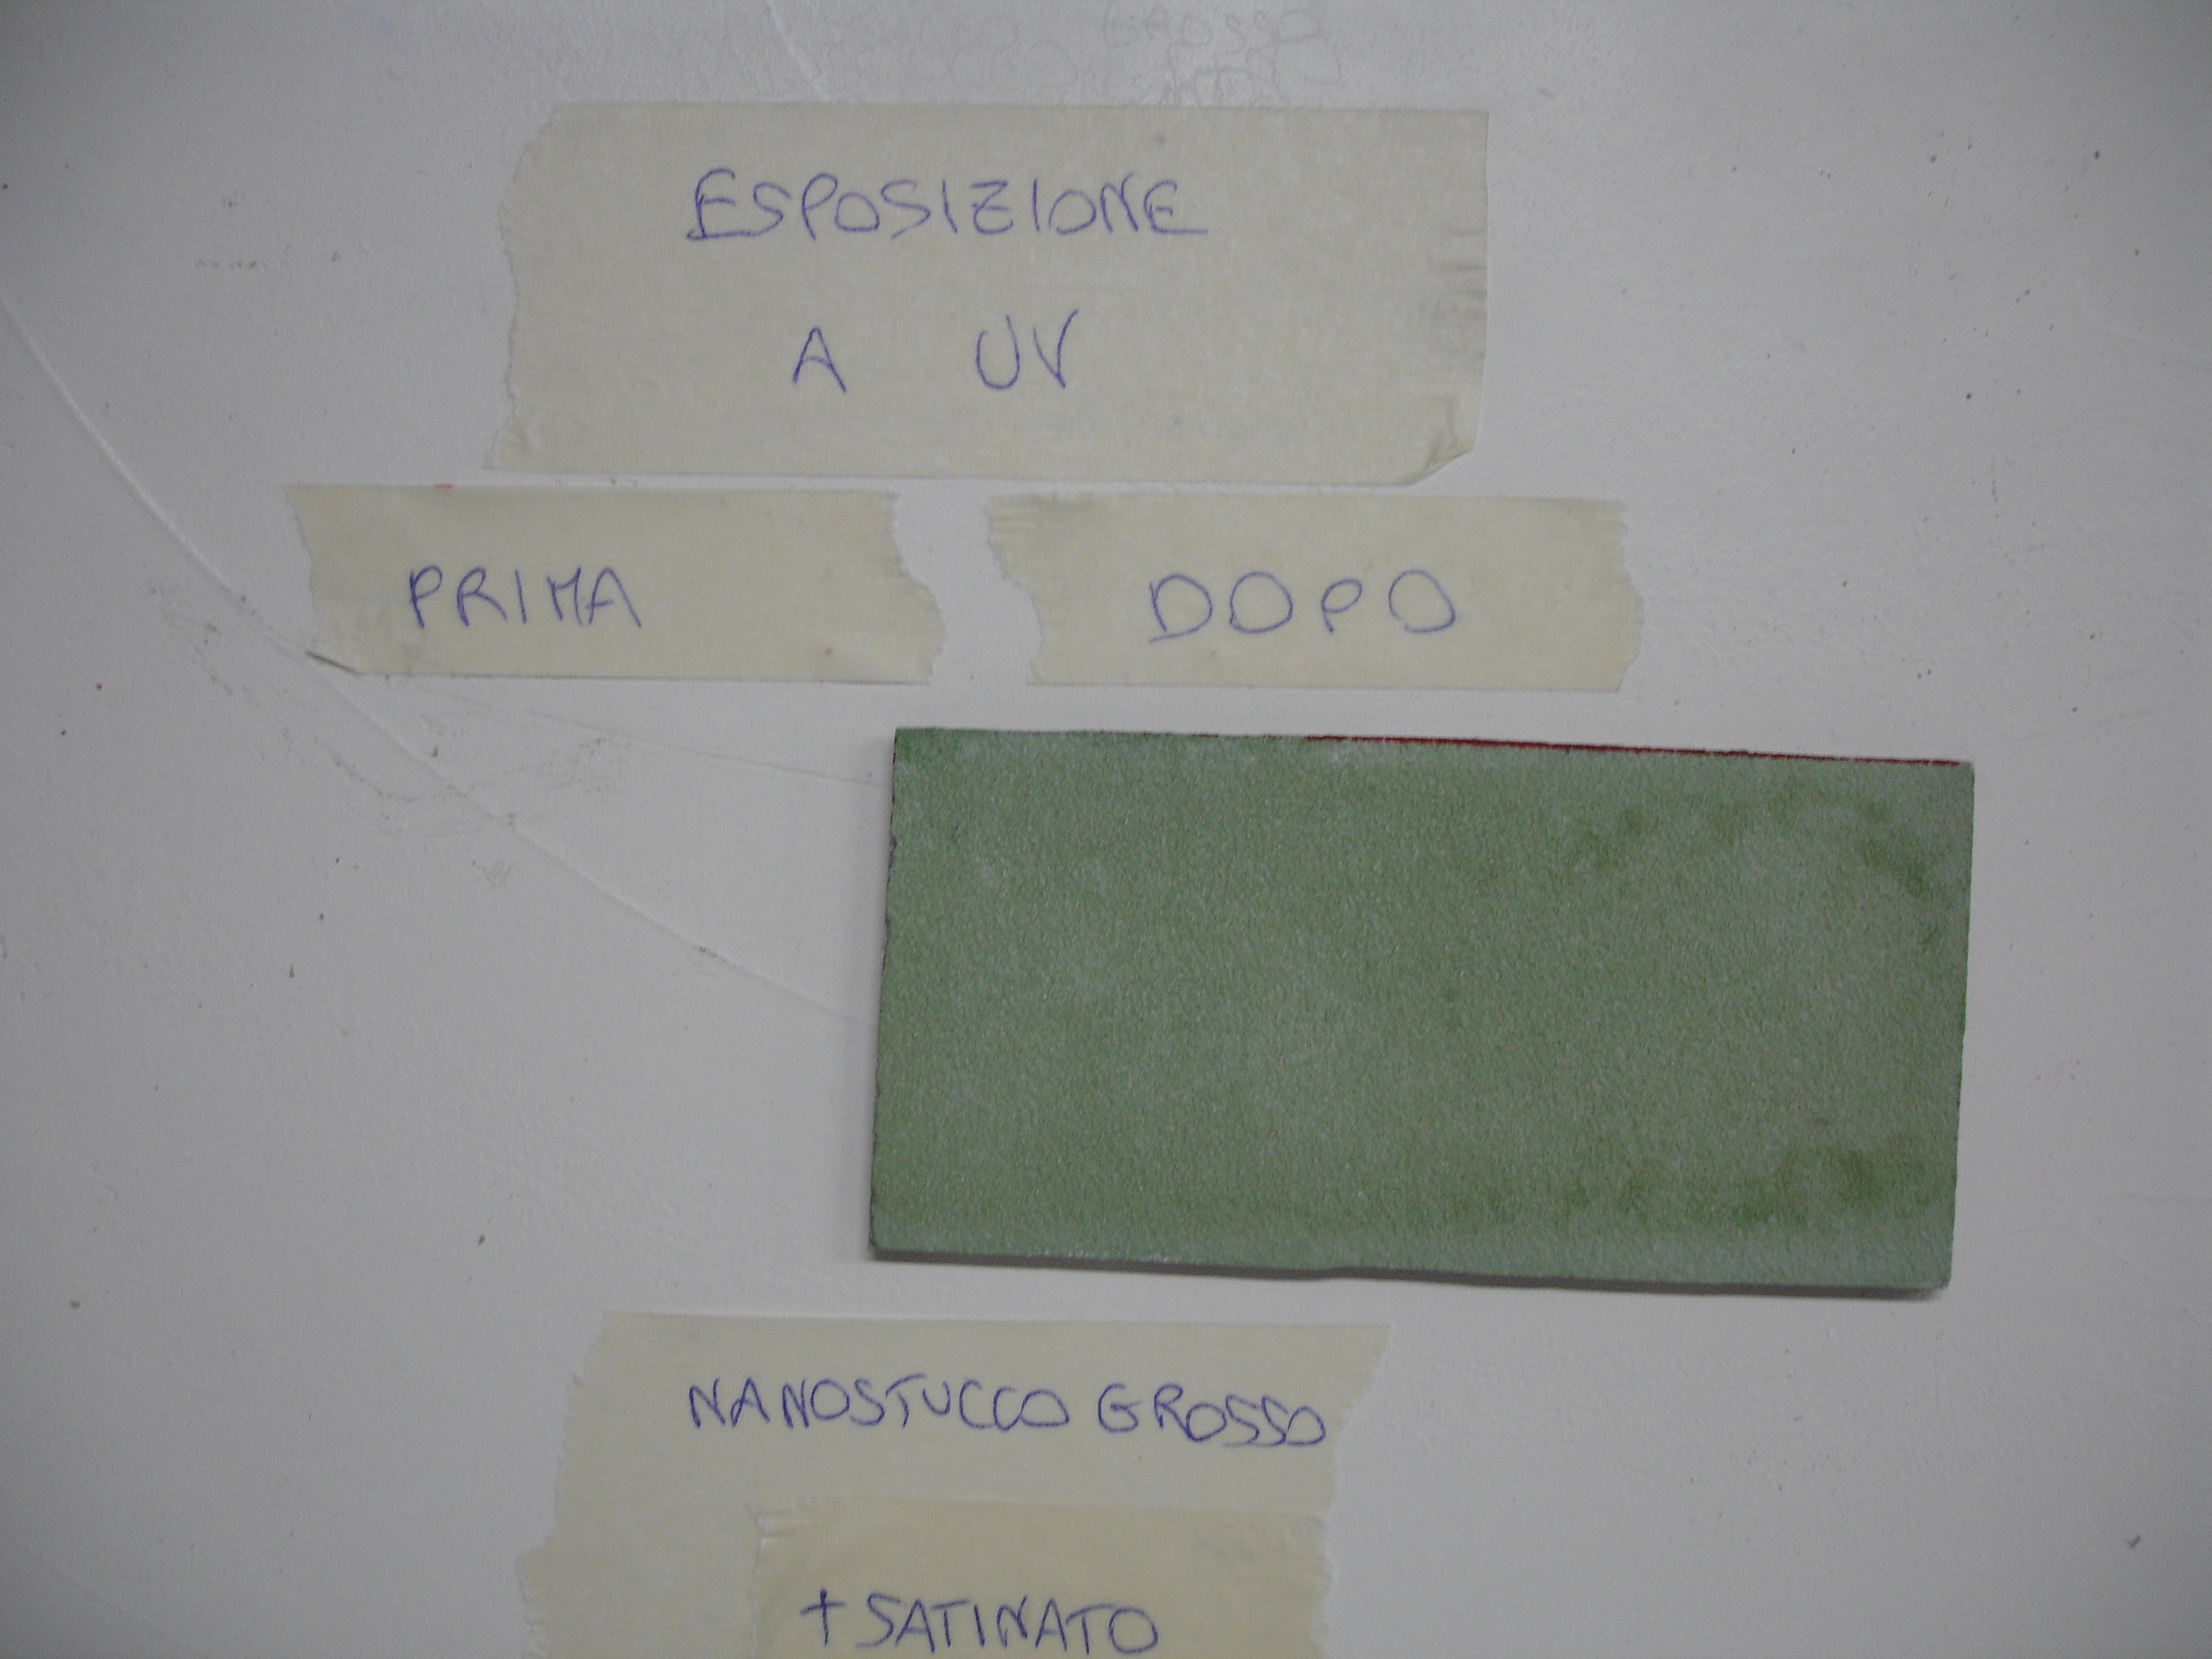 GROSSO
ESPOSIZIONE
A UV
PRIMA DOPO
NANOSTUCCO GROSSO
+ SATINATO